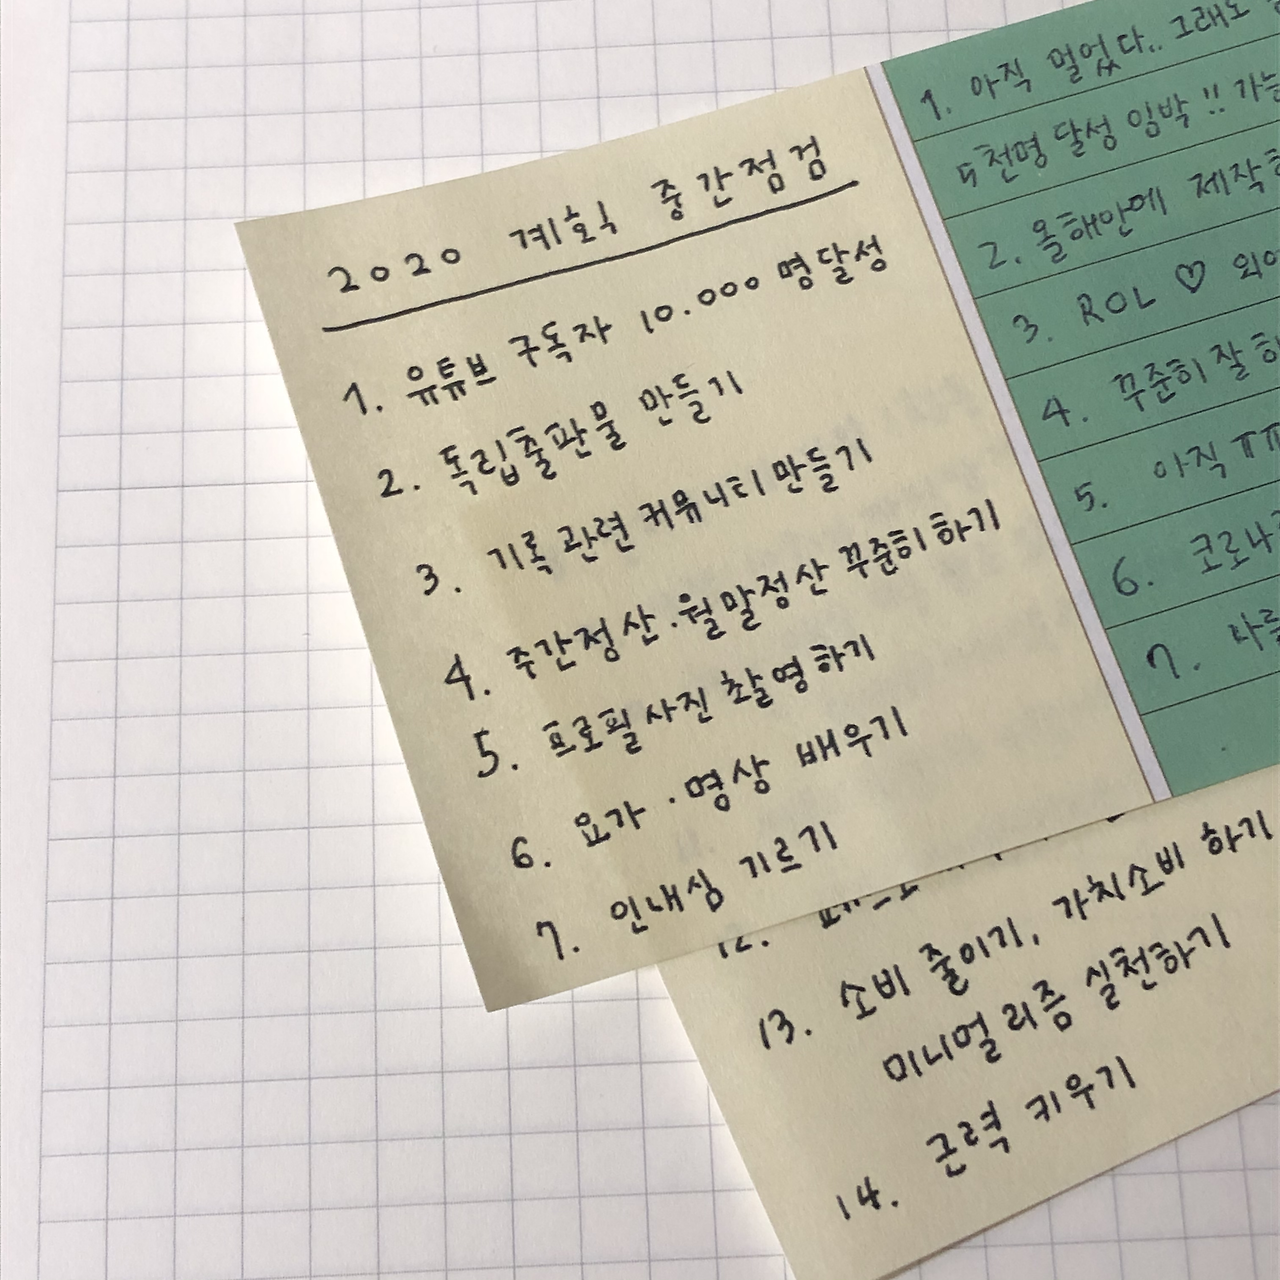 2020 계획 중간점검
1. 유튜브 구독자 10.000 명달성
2. 독립출판물 만들기
3. 기록 관련 커뮤니티 만들기
4. 주간정산·월말정산 꾸준히하기
5. 프로필 사진 촬영하기
6. 요가·명상 배우기
7. 인내심 기르기
1. 아직 멀었다.. 그래도
5천명 달성 임박!!
2. 올해안에
3. ROL ♡
4. 꾸준히 잘
5. 아직 ㅠㅠ
6. 코로나
7.
12.
13. 소비 줄이기, 가치소비 하기
미니멀리즘 실천하기
14. 근력 키우기